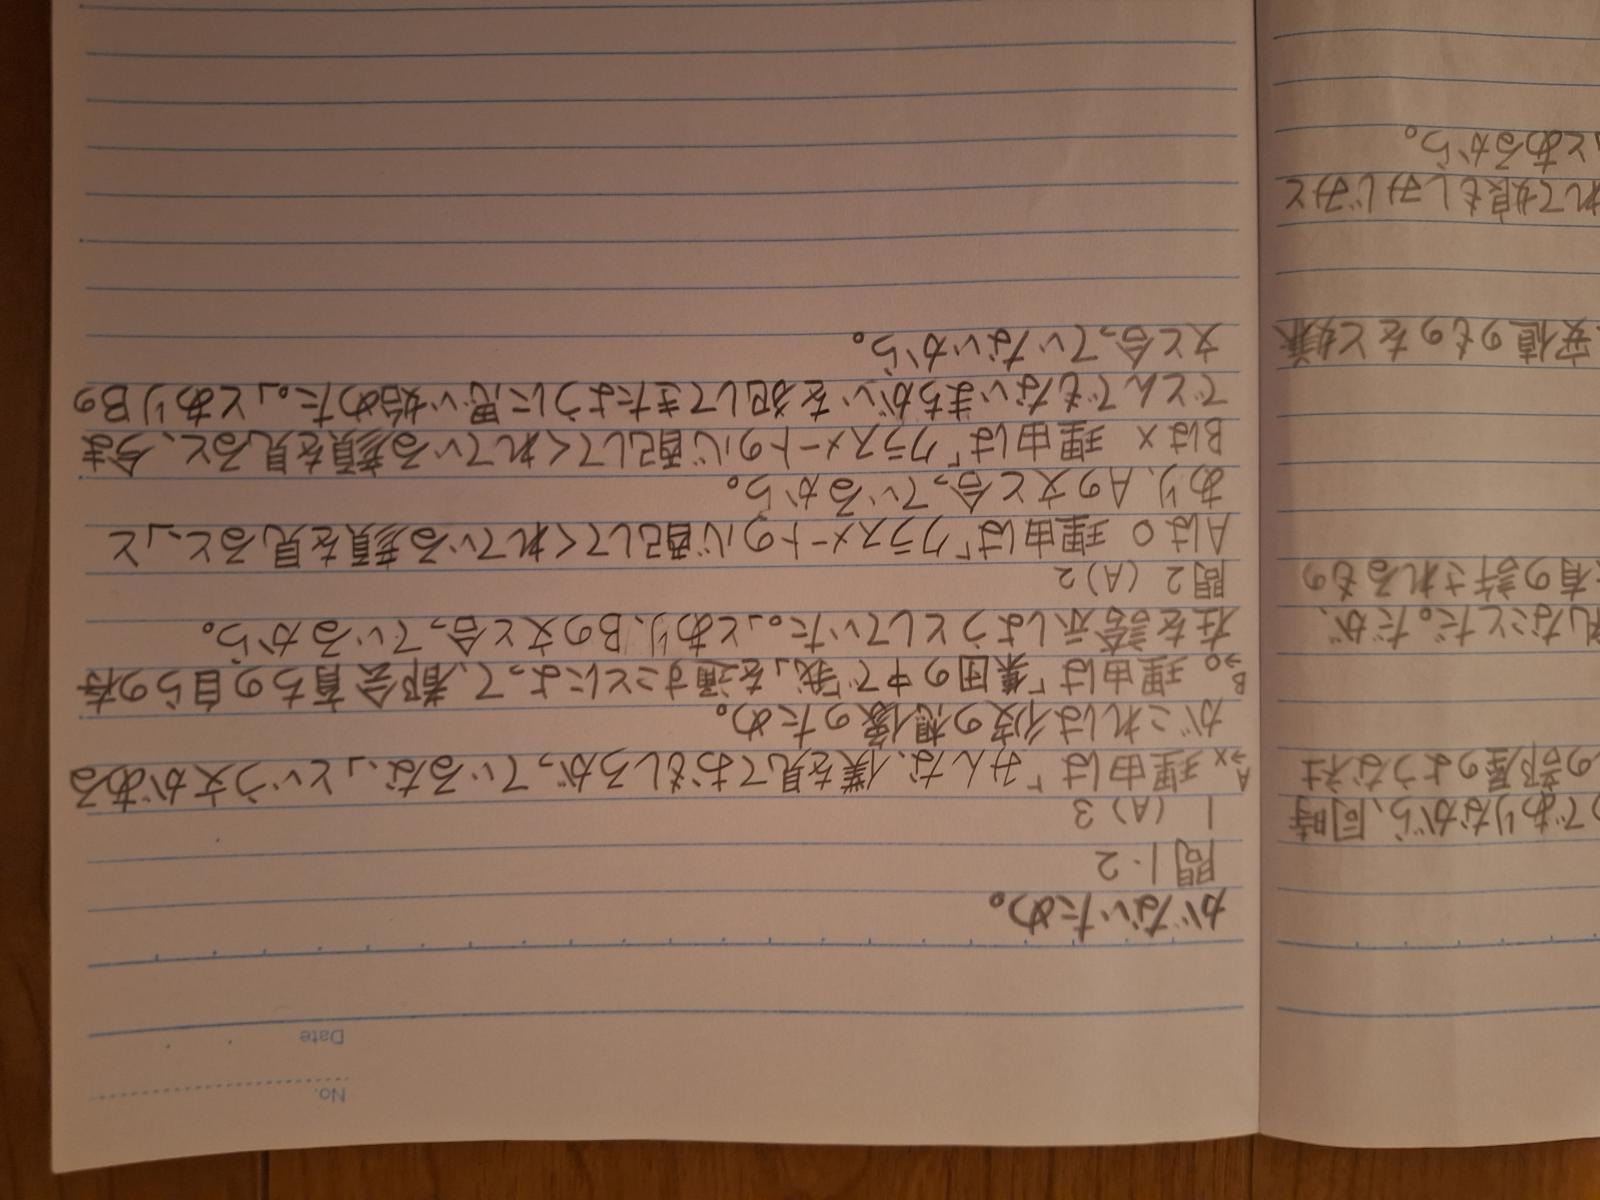 No.
Date
がないため。
問1・2
1 (A) 3
A→× 理由は「みんな、僕を見ておもしろがっているな、」という文がある
がこれは彼の想像のため。
B→○ 理由は「集団の中で「我」を通すことによって、都会育ちの自らの存
在を誇示しようとしていた。」とあり、Bの文と合っているから。
問2 (A) 2
Aは○ 理由は「クラスメートの心配してくれている顔を見ると、」と
あり、Aの文と合っているから。
Bは× 理由は「クラスメートの心配してくれている顔を見ると、今ま
でとんでもないまちがいを犯してきたように思い始めた。」とありBの
文と合っていないから。
でありながら、同時
の部屋のような社
なことだ。だが、
有の許されるもの
安値のものをと嫌
れて娘もしみじみと
とあるから。